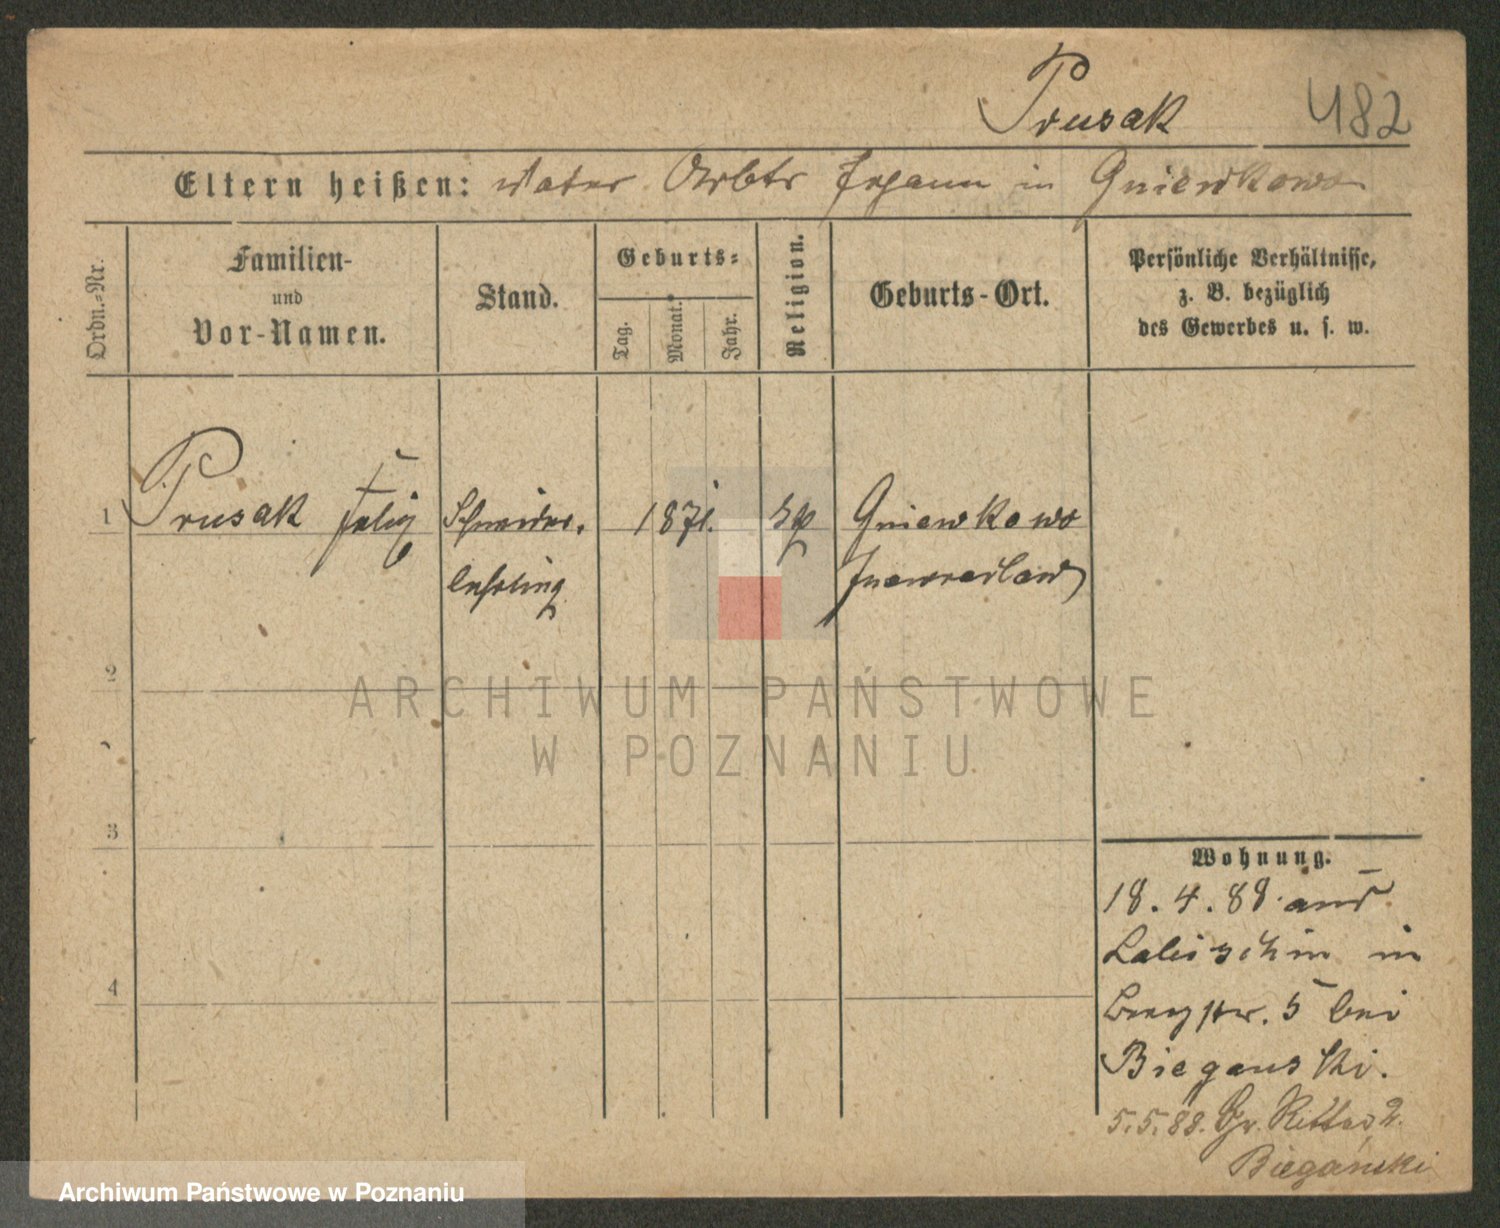 Prusak
482
Eltern heißen: Vater Arbtr Johann in Gniewkowo
Ordn.=Nr.
Familien-
und
Vor-Namen.
Stand.
Geburts=
Tag.
Monat.
Jahr.
Religion.
Geburts-Ort.
Persönliche Verhältnisse,
z. B. bezüglich
des Gewerbes u. s. w.
1 Prusak Felix Schneider. 1871. Gniewkowo
lehrling Inowraclaw
2
3
4
Wohnung.
18.4.88 aus
Labischin in
Bergstr. 5 bei
Bieganski.
5.5.88. Gr. Ritter 2.
Biegański
ARCHIWUM PAŃSTWOWE
W POZNANIU
Archiwum Państwowe w Poznaniu